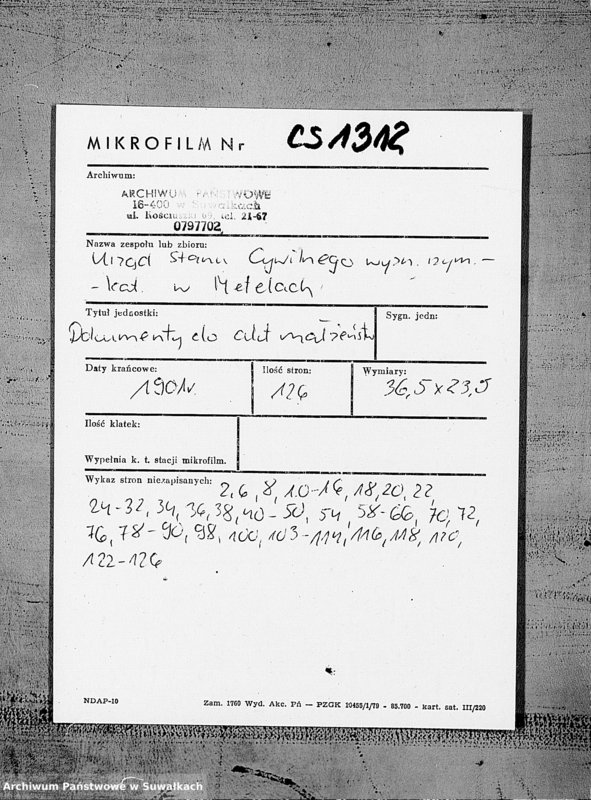 MIKROFILM Nr CS 1312
Archiwum:
ARCHIWUM PAŃSTWOWE
16-400 w Suwałkach
ul. Kościuszki 69, tel. 21-67
0797702
Nazwa zespołu lub zbioru:
Urząd Stanu Cywilnego wyzn. rzym.-
-kat. w Metelach
Tytuł jednostki:
Sygn. jedn:
Dokumenty do akt małżeństw
Daty krańcowe:
Ilość stron:
Wymiary:
1901r.
126
36,5 x 23,5
Ilość klatek:
Wypełnia k. t. stacji mikrofilm.
Wykaz stron niezapisanych:
2, 6, 8, 10-16, 18, 20, 22,
24-32, 34, 36, 38, 40-50, 54, 58-66, 70, 72,
76, 78-90, 98, 100, 103-114, 116, 118, 120,
122-126
NDAP-10
Zam. 1760 Wyd. Akc. Pń — PZGK 10455/1/79 - 85.700 - kart. sat. III/220
Archiwum Państwowe w Suwałkach